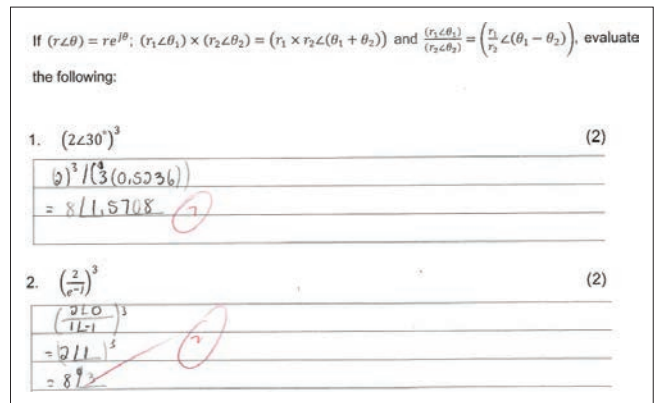 If (r∠θ) = re^{jθ}; (r₁∠θ₁) × (r₂∠θ₂) = (r₁ × r₂∠(θ₁ + θ₂)) and (r₁∠θ₁)/(r₂∠θ₂) = (r₁/r₂ ∠(θ₁ − θ₂)), evaluate
the following:
1. (2∠30°)³ (2)
(2)³∠(3(0,5236))
= 8∠1,5708
2. (2/e^{-j})³ (2)
(2∠0/1∠-1)³
= (2∠1)³
= 8∠3